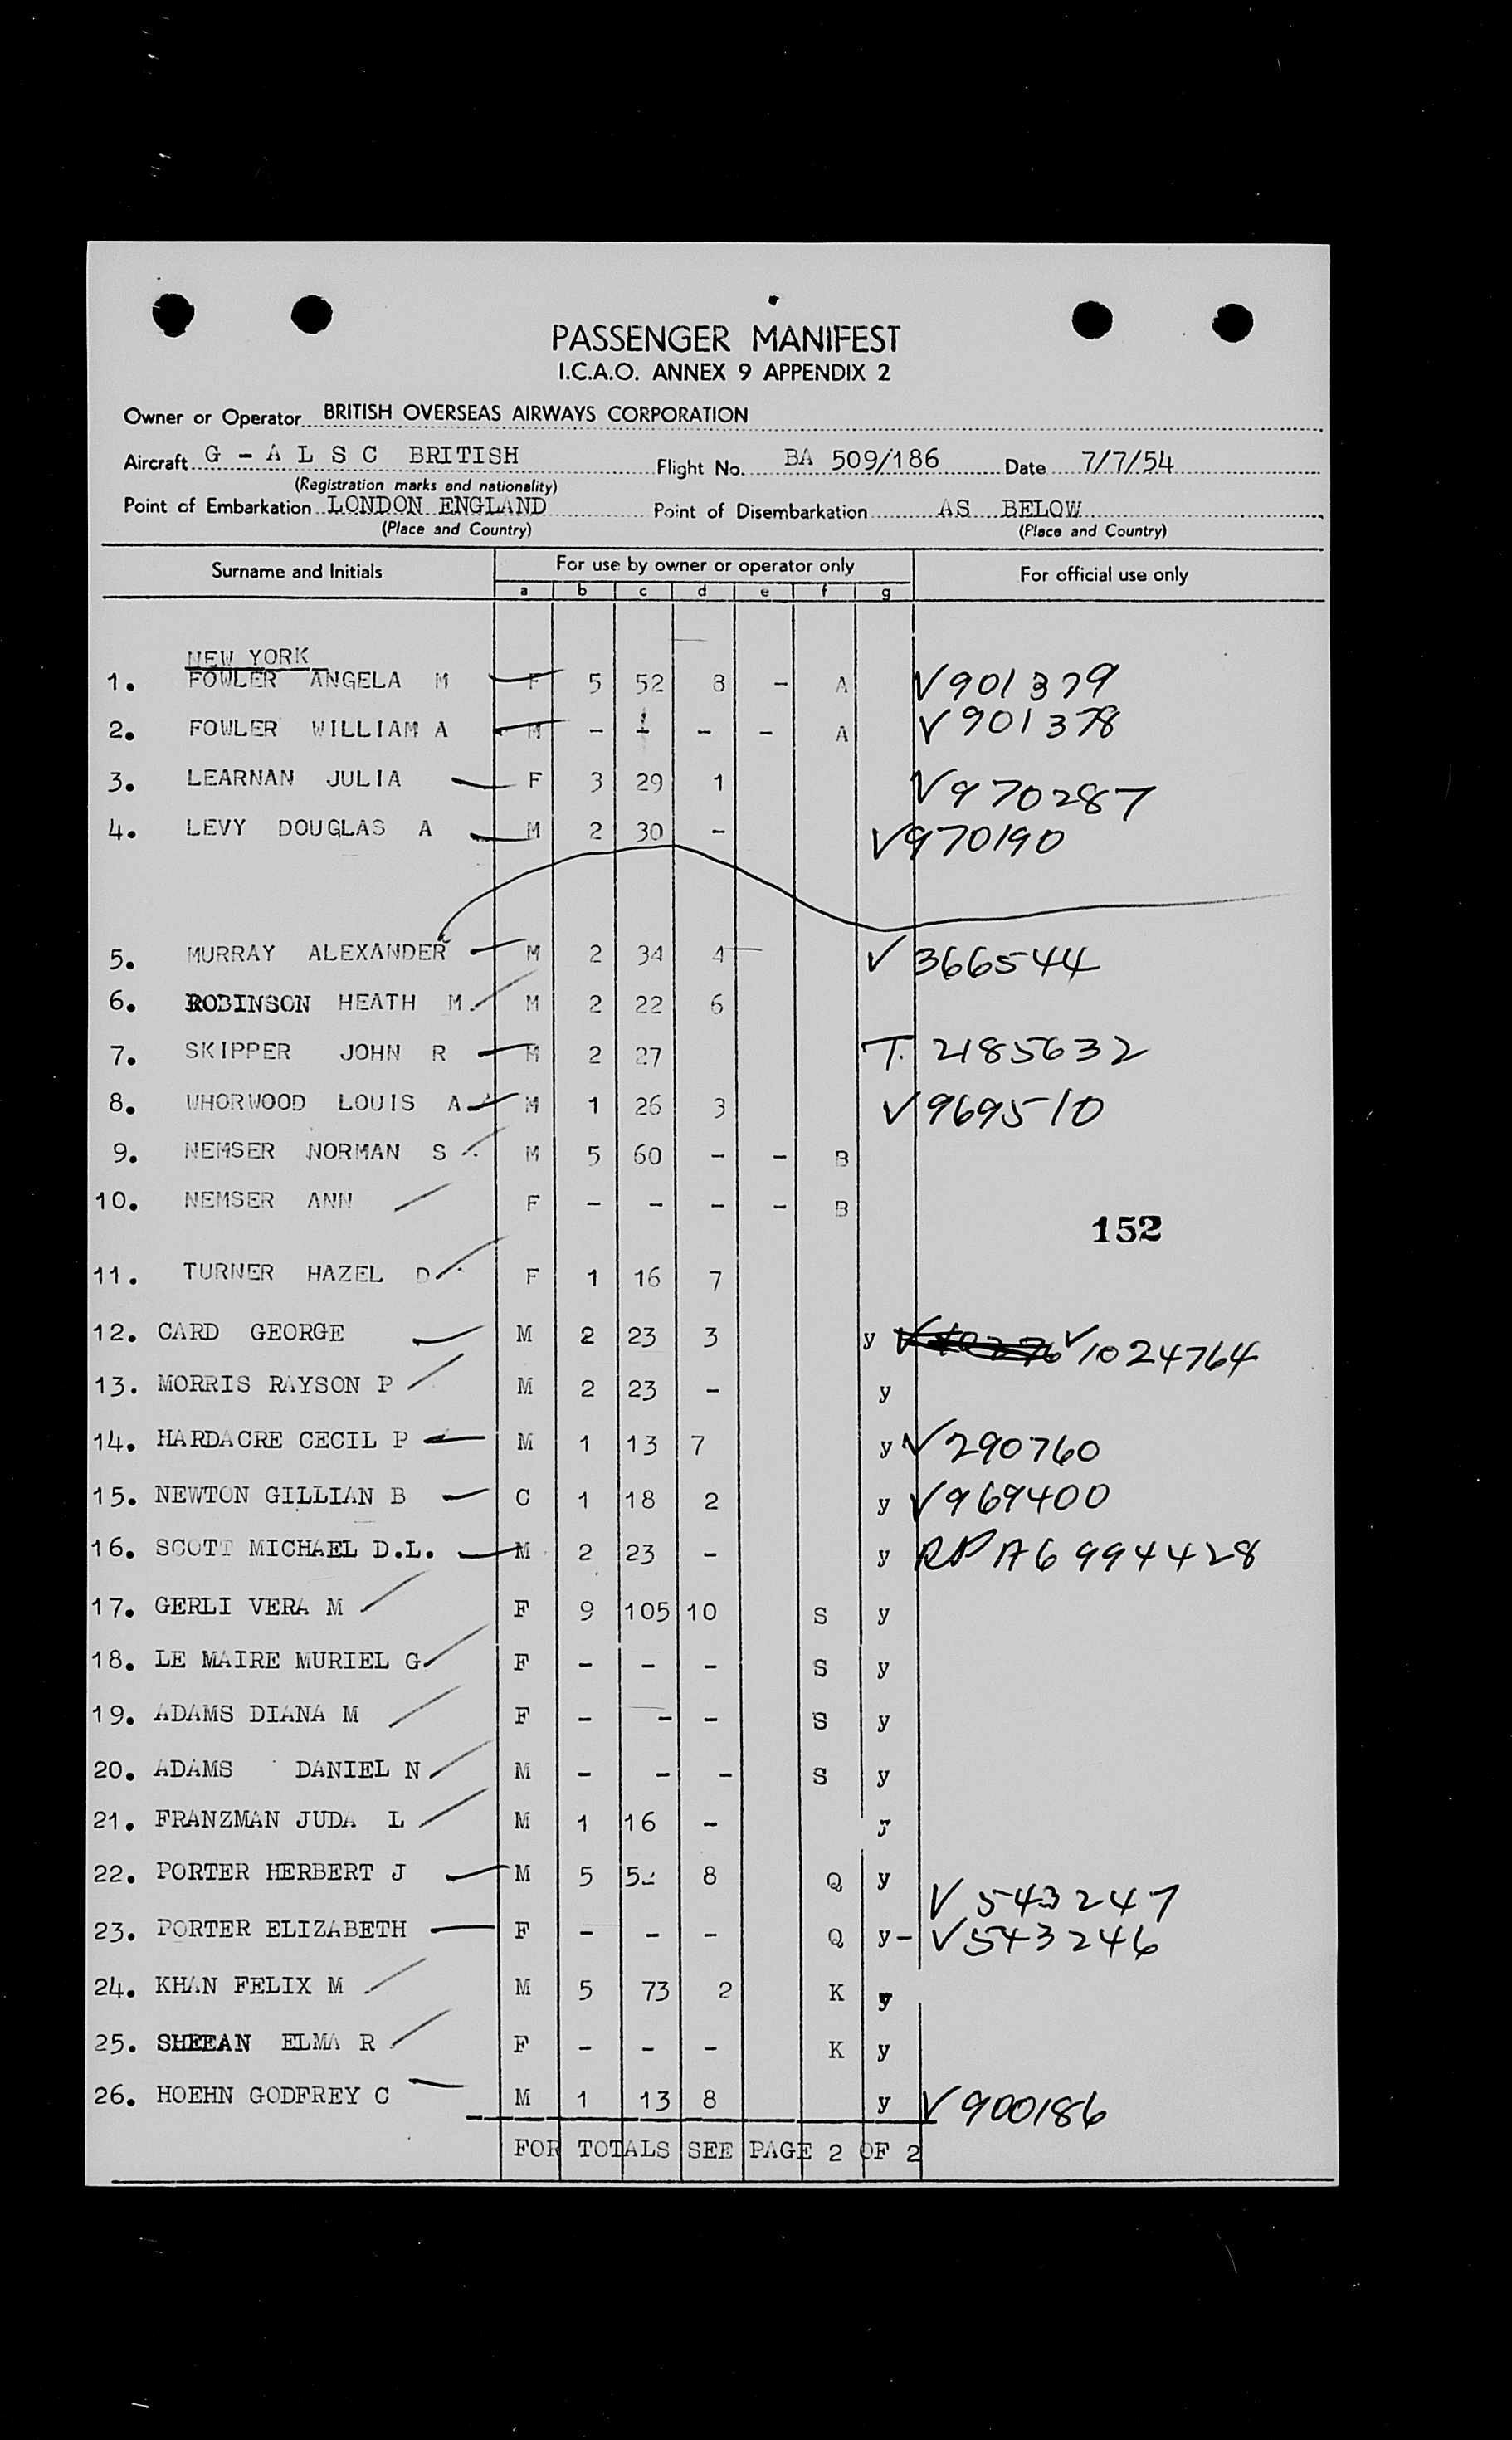 PASSENGER MANIFEST
I.C.A.O. ANNEX 9 APPENDIX 2
Owner or Operator BRITISH OVERSEAS AIRWAYS CORPORATION
Aircraft G - A L S C BRITISH Flight No. BA 509/186 Date 7/7/54
(Registration marks and nationality)
Point of Embarkation LONDON ENGLAND Point of Disembarkation AS BELOW
(Place and Country) (Place and Country)
Surname and Initials For use by owner or operator only For official use only
a b c d e f g
NEW YORK
1. FOWLER ANGELA M F 5 52 8 - A V901379
2. FOWLER WILLIAM A M - - - - A V901378
3. LEARNAN JULIA F 3 29 1 V970287
4. LEVY DOUGLAS A M 2 30 - V970190
5. MURRAY ALEXANDER M 2 34 4 V 366544
6. ROBINSON HEATH M. M 2 22 6
7. SKIPPER JOHN R M 2 27 T. 2185632
8. WHORWOOD LOUIS A M 1 26 3 V969510
9. NEMSER NORMAN S M 5 60 - - B
10. NEMSER ANN F - - - - B
152
11. TURNER HAZEL D F 1 16 7
12. CARD GEORGE M 2 23 3 y V1024764
13. MORRIS RAYSON P M 2 23 - y
14. HARDACRE CECIL P M 1 13 7 y V290760
15. NEWTON GILLIAN B C 1 18 2 y V969400
16. SCOTT MICHAEL D.L. M 2 23 - y RP A6 994428
17. GERLI VERA M F 9 105 10 S y
18. LE MAIRE MURIEL G F - - - S y
19. ADAMS DIANA M F - - - S y
20. ADAMS DANIEL N M - - - S y
21. FRANZMAN JUDA L M 1 16 - y
22. PORTER HERBERT J M 5 52 8 Q y V 543247
23. PORTER ELIZABETH F - - - Q y - V543246
24. KHAN FELIX M M 5 73 2 K y
25. SHEEAN ELMA R F - - - K y
26. HOEHN GODFREY C M 1 13 8 y V900186
FOR TOTALS SEE PAGE 2 OF 2